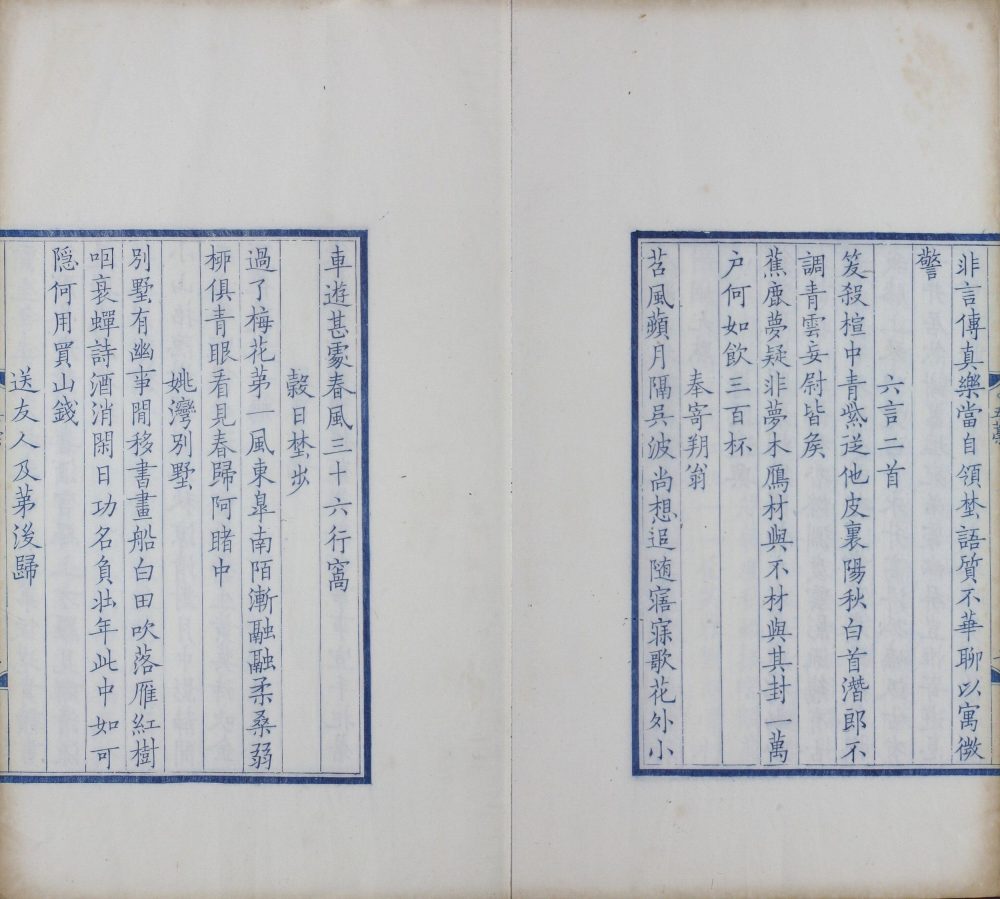 非言傳真樂當自領埜語質不華聊以寓微
警
六言二首
笈殺楦中青紫從他皮裏陽秋白首潛郎不
調青雲妄尉皆矦
蕉鹿夢疑非夢木鴈材與不材與其封一萬
户何如飲三百杯
奉寄朔翁
苕風蘋月隔吳波尚想追随寤寐歌花外小
車遊甚處春風三十六行窩
穀日埜步
過了梅花苐一風東臯南陌漸融融柔桑弱
桺俱青眼看見春歸阿睹中
姚灣別墅
別墅有幽事閒移書畫船白田吹落雁紅樹
咽衰蟬詩酒消閑日功名負壮年此中如可
隠何用買山錢
送友人及苐後歸